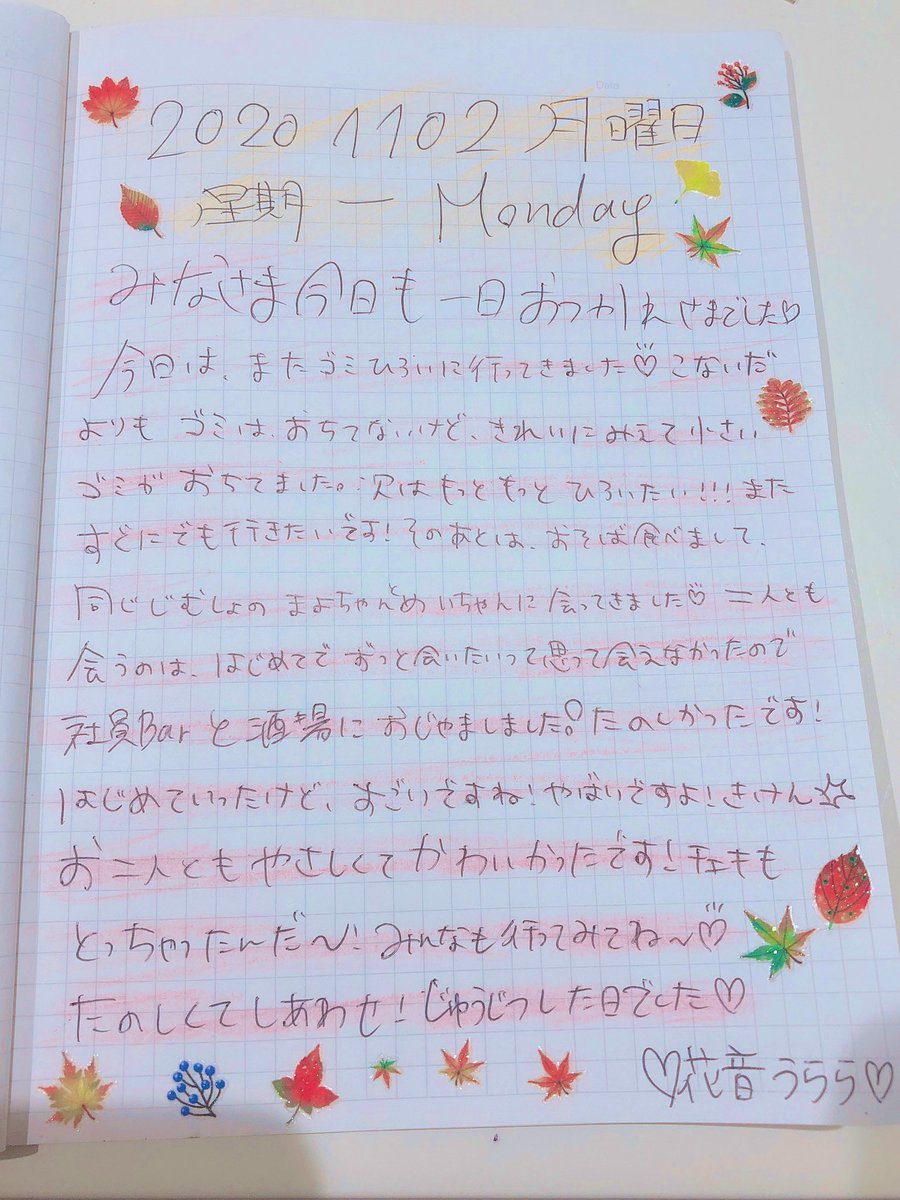 Date
2020 1102 月曜日
星期一 Monday
みなさま今日も一日おつかれさまでした♡
今日は、またゴミひろいに行ってきました♡こないだ
よりも ゴミは、おちてないけど、きれいにみえて小さい
ゴミが おちてました。次はもっともっと ひろいたい!!!また
すぐにでも行きたいです!そのあとは、おそば食べまして、
同じじむしょの まよちゃんとめいちゃんに会ってきました♡ 二人とも
会うのは、はじめてで ずっと会いたいって思って会えなかったので
社員Barと酒場に おじゃましました。たのしかったです!
はじめていったけど、すごいですね!やばいですよ!きけん
お二人とも やさしくて かわいかったです!チェキも
とっちゃったんだ〜!みんなも行ってみてね〜♡
たのしくてしあわせ!じゅうじつした日でした♡
♡花音うらら♡